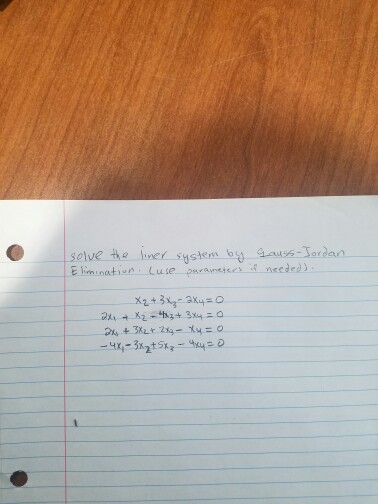 solve the liner system by Gauss-Jordan
Elimination. (use parameters if needed).
x₂ + 3x₃ - 2x₄ = 0
2x₁ + x₂ - 4x₃ + 3x₄ = 0
2x₁ + 3x₂ + 2x₃ - x₄ = 0
-4x₁ - 3x₂ + 5x₃ - 4x₄ = 0